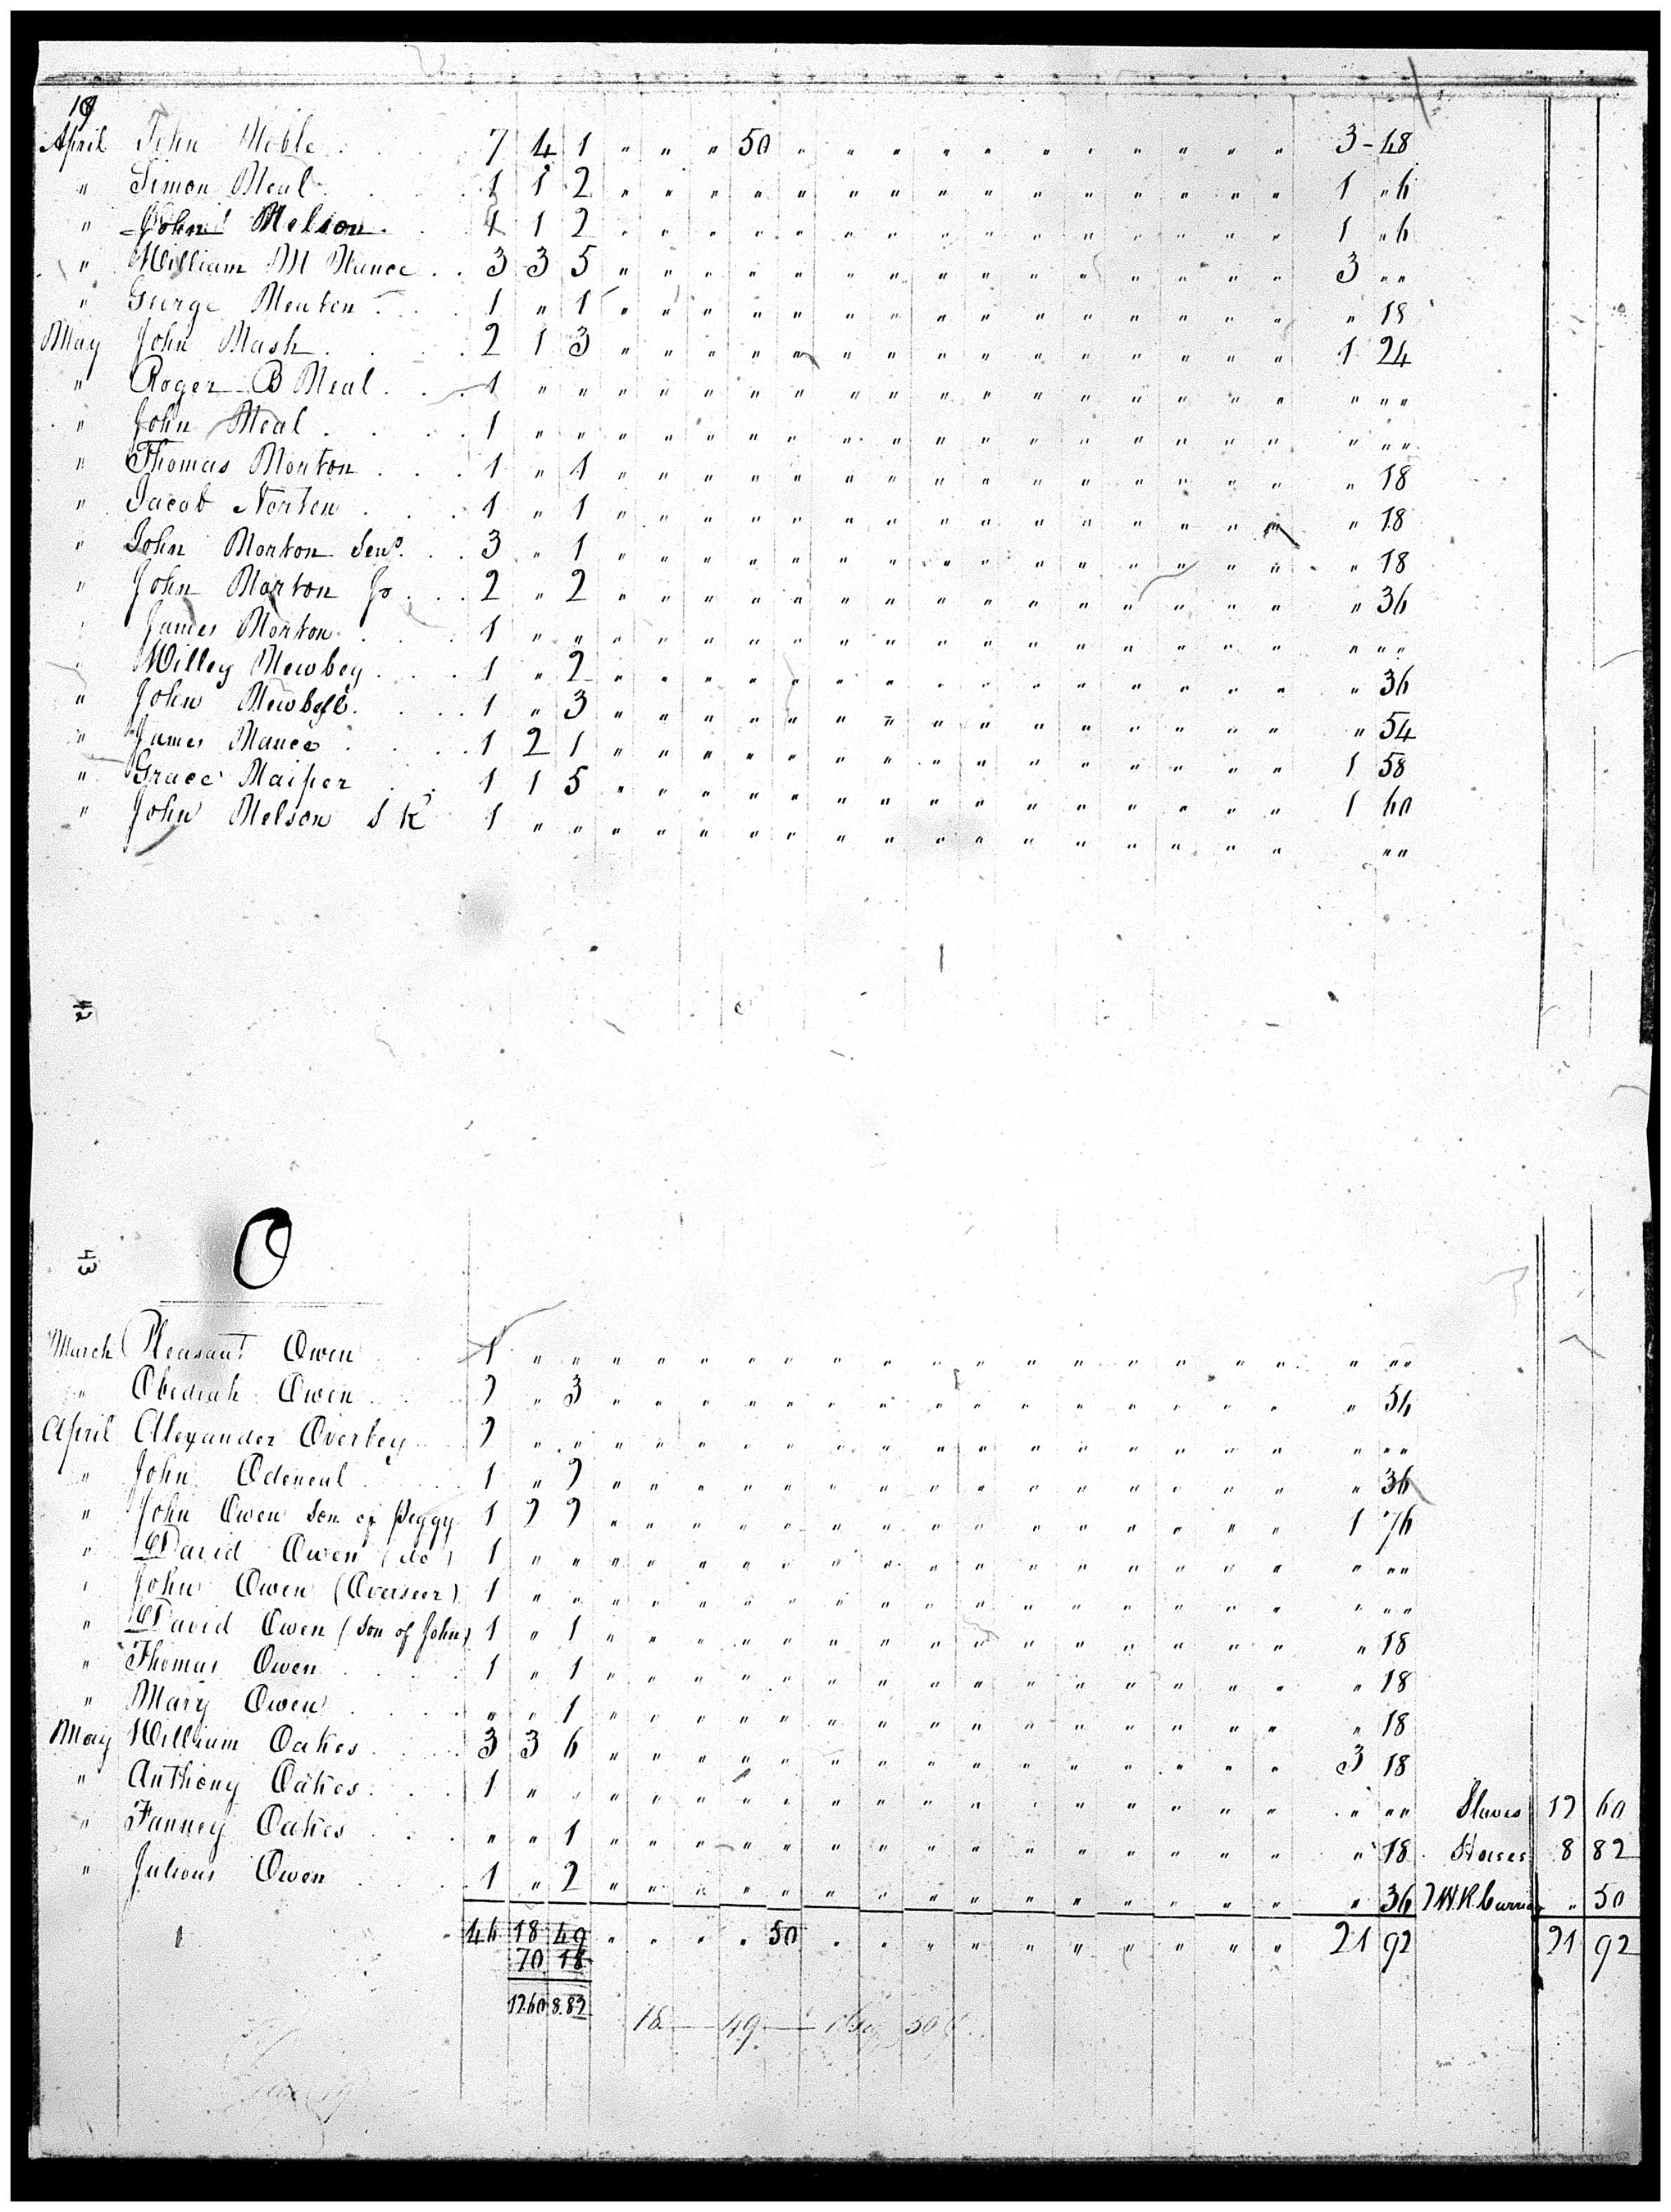 19
April John Noble 7 4 1 " " " 50 " " " " " " " " " " " 3-48
" Simon Neal 1 1 2 " " " " " " " " " " " " " " " 1 "6
" John Nelson 1 1 2 " " " " " " " " " " " " " " " 1 "6
" William M Nance 3 3 5 " " " " " " " " " " " " " " " 3 " "
" George Newton 1 " 1 " " " " " " " " " " " " " " " " 18
May John Nash 2 1 3 " " " " " " " " " " " " " " " 1 24
" Roger B Neal 1 " " " " " " " " " " " " " " " " " " " "
" John Neal 1 " " " " " " " " " " " " " " " " " " " "
" Thomas Norton 1 " 1 " " " " " " " " " " " " " " " " 18
" Jacob Norton 1 " 1 " " " " " " " " " " " " " " " " 18
" John Norton Senr. 3 " 1 " " " " " " " " " " " " " " " " 18
" John Norton Jr 2 " 2 " " " " " " " " " " " " " " " " 36
" James Norton 1 " " " " " " " " " " " " " " " " " " " "
" Willey Newbey 1 " 2 " " " " " " " " " " " " " " " " 36
" John Newbell 1 " 3 " " " " " " " " " " " " " " " " 54
" James Nance 1 2 1 " " " " " " " " " " " " " " " 1 58
" Grace Naiper 1 1 5 " " " " " " " " " " " " " " " 1 60
" John Nelson S K 1 " " " " " " " " " " " " " " " " " " "
42
43
O
March Pleasant Owen 1 " " " " " " " " " " " " " " " " " " " "
" Obediah Owen 2 " 3 " " " " " " " " " " " " " " " " 54
April Alexander Overbey 2 " " " " " " " " " " " " " " " " " " " "
" John Odeneal 1 " 2 " " " " " " " " " " " " " " " " 36
" John Owen son of Peggy 1 2 2 " " " " " " " " " " " " " " " 1 76
" David Owen (do) 1 " " " " " " " " " " " " " " " " " " " "
" John Owen (Overseer) 1 " " " " " " " " " " " " " " " " " " " "
" David Owen (son of John) 1 " 1 " " " " " " " " " " " " " " " " 18
" Thomas Owen 1 " 1 " " " " " " " " " " " " " " " " 18
" Mary Owen " " 1 " " " " " " " " " " " " " " " " 18
May William Oakes 3 3 6 " " " " " " " " " " " " " " " 3 18
" Anthony Oakes 1 " " " " " " " " " " " " " " " " " " " " Slaves 12 60
" Fanney Oakes " " 1 " " " " " " " " " " " " " " " " 18 Horses 8 82
" Julious Owen 1 " 2 " " " " " " " " " " " " " " " " 36 W.R. Carriage " 50
46 18 49 " " " " 50 " " " " " " " " " " " 21 92 21 92
70 18
12.60 8.82
18 — 49 — 50